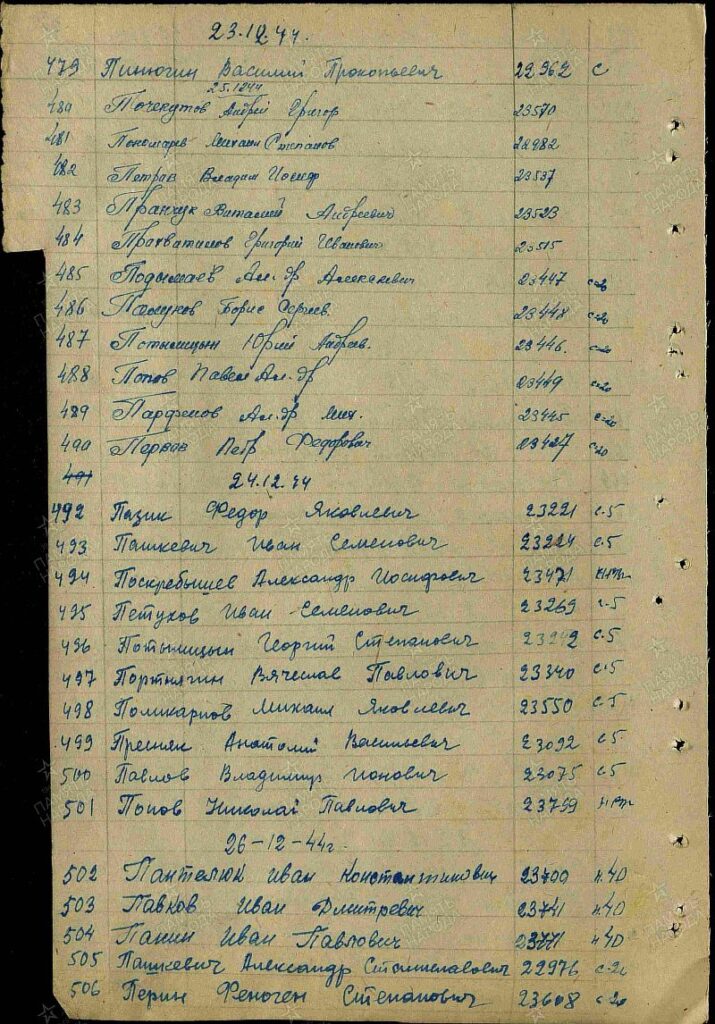 23.12.44.
479 Пинюгин Василий Прокопьевич 22962 с
25.1244
480 Почекутов Андрей Григор 23570
481 Пономарев Михаил Степанов 22982
482 Петров Владим Иосиф 23537
483 Пранчук Виталий Андреевич 23523
484 Прохватилов Григорий Иванович 23515
485 Подымаев Ал-др Алексеевич 23447 с-20
486 Борис Сергеев. 23448 с-20
487 Потылицын Юрий Андреев. 23446. с-20
488 Попов Павел Ал-др 23449 с-20
489 Парфенов Ал-др Мих. 23445 с-20
490 Первов Петр Федорович 23427 с-20
491 24.12.44
492 Пазик Федор Яковлевич 23221 с.5
493 Пашкевич Иван Семенович 23224 с.5
494. Поскребышев Александр Иосифович 23471
495 Петухов Иван Семенович 23269 с-5
496 Потылицын Георгий Степанович 23242 с.5
497 Портнягин Вячеслав Павлович 23340 с.5
498 Поликарпов Михаил Яковлевич 23550 с.5
499 Пресняк Анатолий Васильевич 23092 с.5
500 Павлов Владимир Ионович 23075 с.5
501 Попов Николай Павлович 23799
26-12-44г.
502 Пантелюк Иван Константинович 23700 н.40
503 Павков Иван Дмитревич 23741 н.40
504 Панин Иван Павлович 23771 н.40
505 Пашкевич Александр Станиславович 22976 с-20
506 Перин Феноген Степанович 23608 с-20